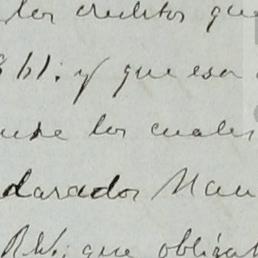 los creditos que
y que esa
los cuales
darador Man
que obligat